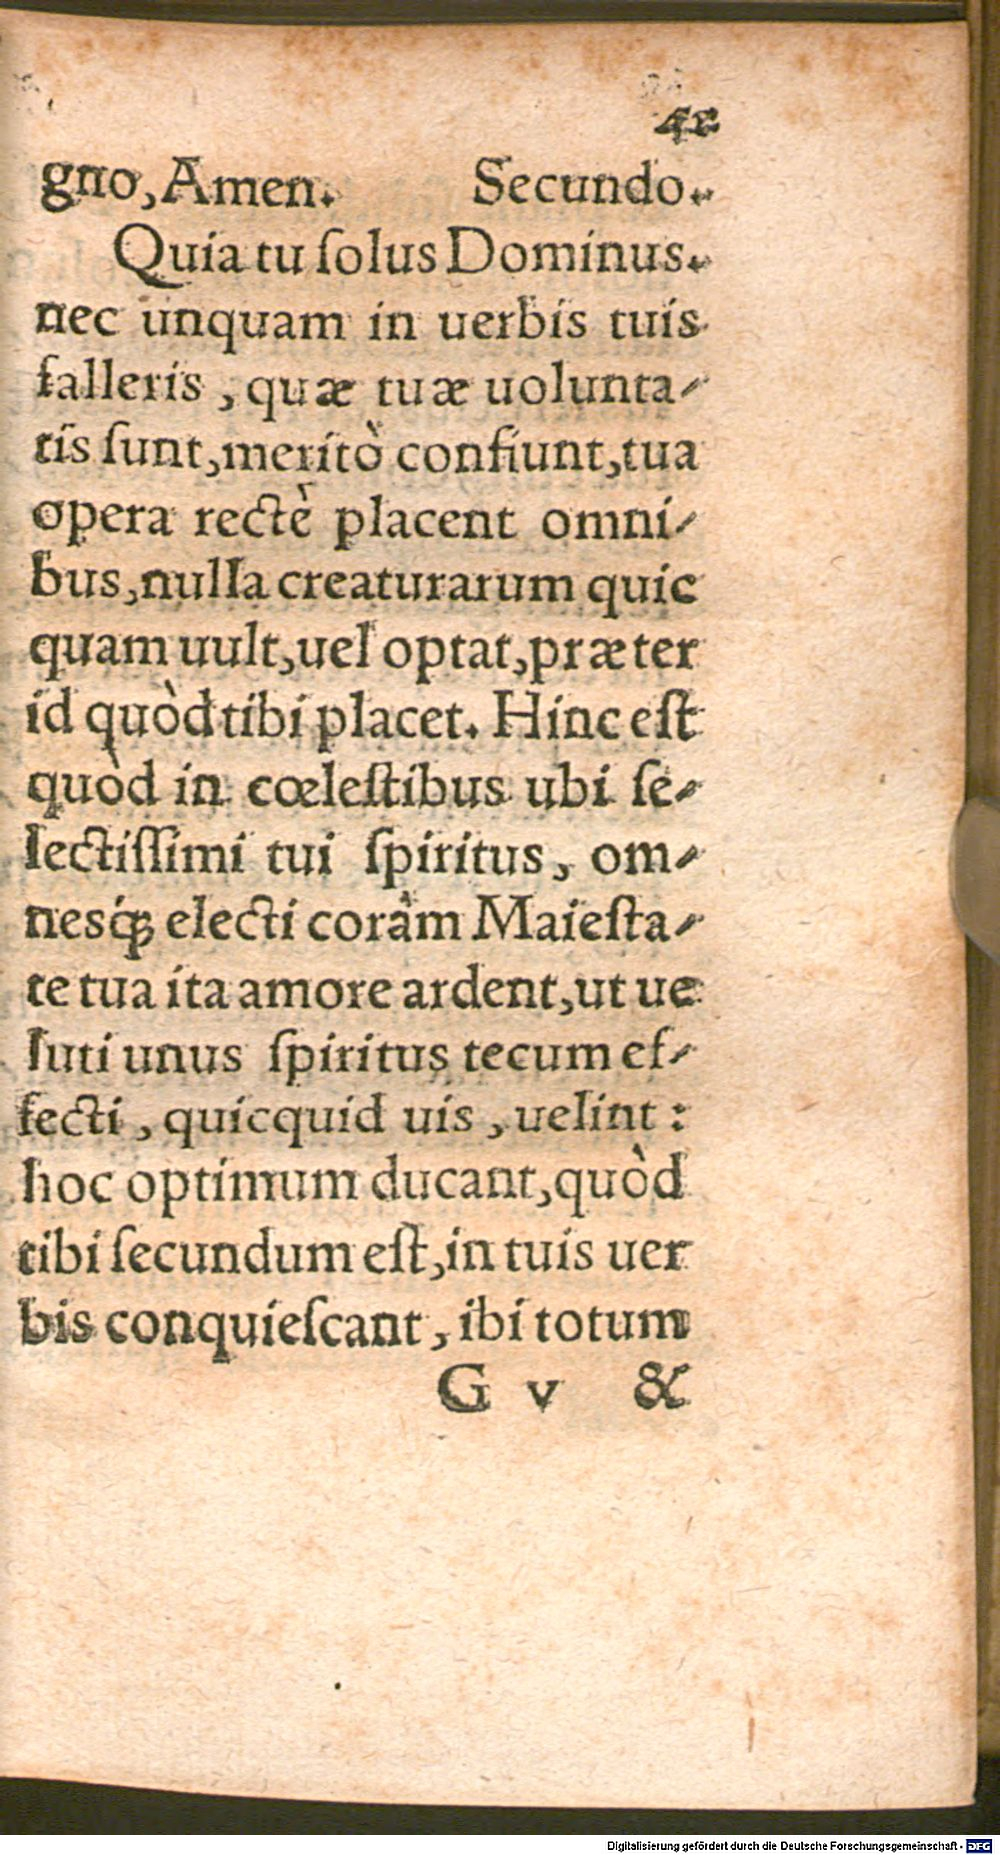 gno, Amen. Secundo.
Quia tu ſolus Dominus.
nec unquam in uerbis tuis
falleris, quæ tuæ uolunta-
tis ſunt, meritò confiunt, tua
opera rectè placent omni-
bus, nulla creaturarum quic
quam uult, uel optat, præter
id quòd tibi placet. Hinc eſt
quòd in cœleſtibus ubi ſe-
lectiſſimi tui ſpiritus, om-
nesq́ꝫ electi coràm Maieſta-
te tua ita amore ardent, ut ue
luti unus ſpiritus tecum ef-
fecti, quicquid uis, uelint:
hoc optimum ducant, quòd
tibi ſecundum eſt, in tuis uer
bis conquieſcant, ibi totum
G v &
Digitalisierung gefördert durch die Deutsche Forschungsgemeinschaft - DFG